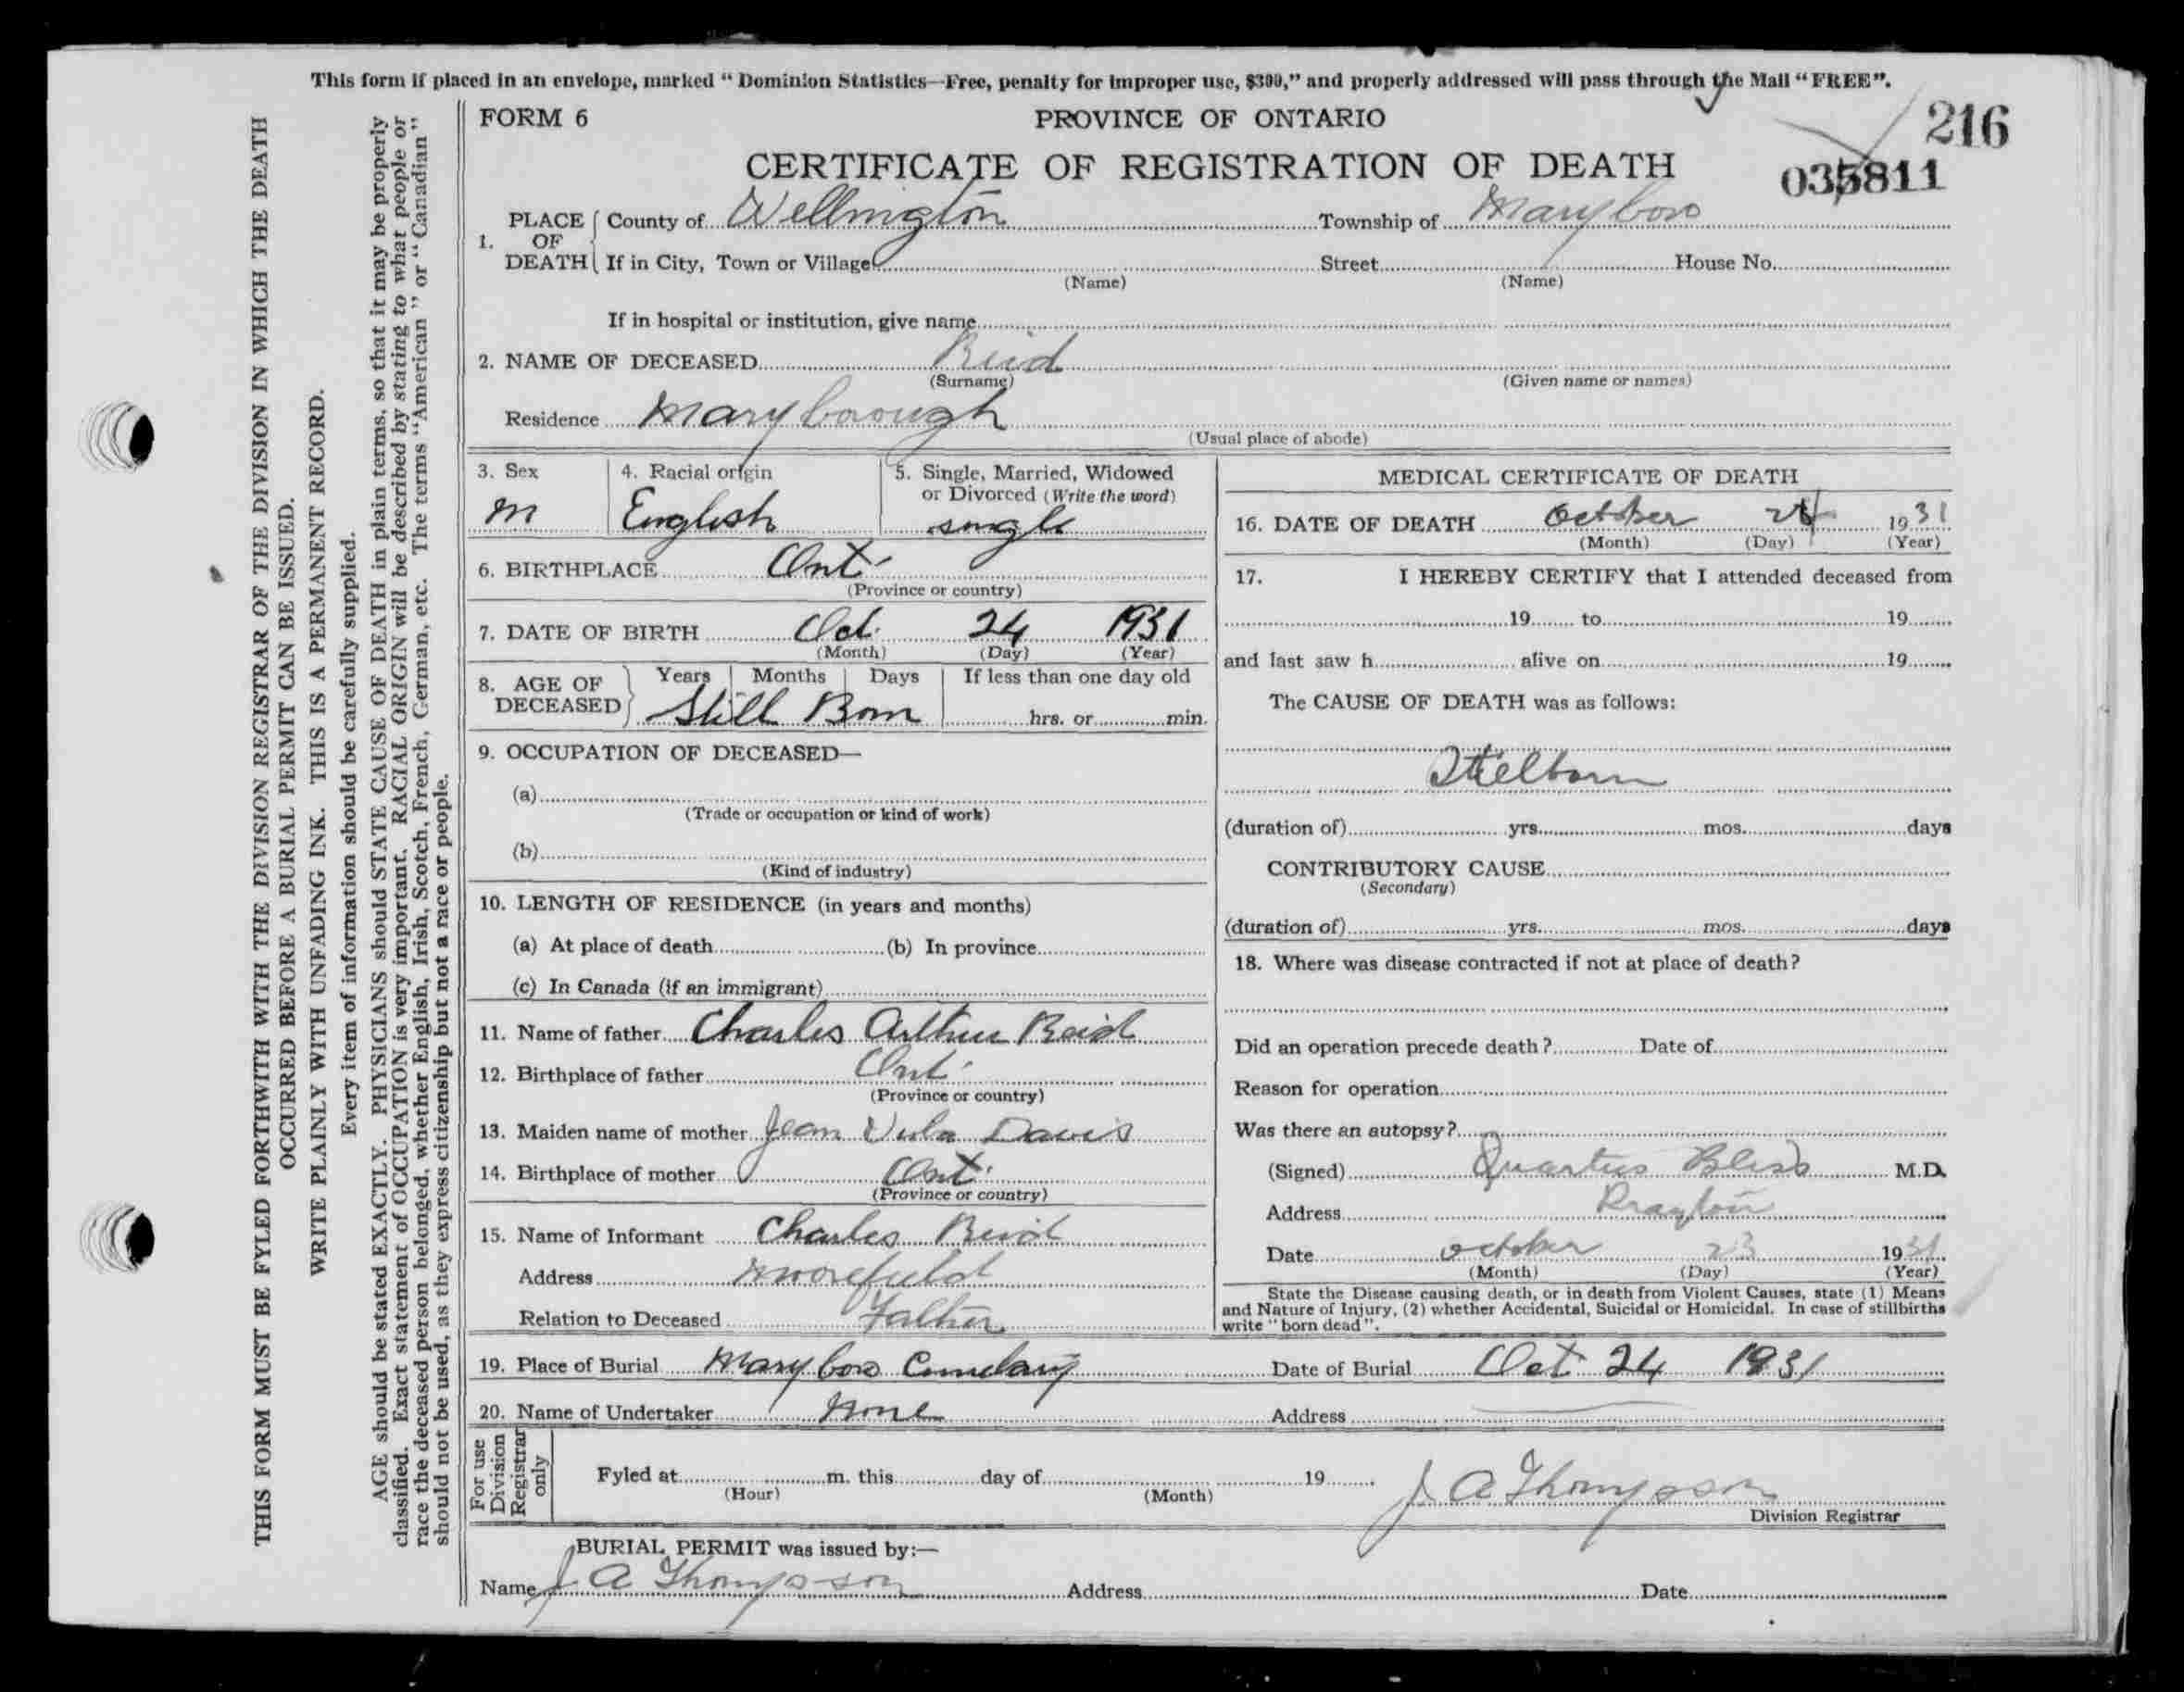 This form if placed in an envelope, marked “Dominion Statistics—Free, penalty for improper use, $300,” and properly addressed will pass through the Mail “FREE”.
FORM 6
PROVINCE OF ONTARIO
216
CERTIFICATE OF REGISTRATION OF DEATH
035811
1. PLACE OF DEATH County of Wellington Township of Maryboro
If in City, Town or Village Street House No.
(Name) (Name)
If in hospital or institution, give name
2. NAME OF DECEASED Reid
(Surname) (Given name or names)
Residence Maryborough
(Usual place of abode)
3. Sex M
4. Racial origin English
5. Single, Married, Widowed or Divorced (Write the word) single
6. BIRTHPLACE Ont.
(Province or country)
7. DATE OF BIRTH Oct. 24 1931
(Month) (Day) (Year)
8. AGE OF DECEASED Years Months Days If less than one day old
Still Born hrs. or min.
9. OCCUPATION OF DECEASED—
(a)
(Trade or occupation or kind of work)
(b)
(Kind of industry)
10. LENGTH OF RESIDENCE (in years and months)
(a) At place of death (b) In province
(c) In Canada (if an immigrant)
11. Name of father Charles Arthur Reid
12. Birthplace of father Ont.
(Province or country)
13. Maiden name of mother Jean Davis
14. Birthplace of mother Ont.
(Province or country)
15. Name of Informant Charles Reid
Address Moorefield
Relation to Deceased Father
MEDICAL CERTIFICATE OF DEATH
16. DATE OF DEATH October 24 1931
(Month) (Day) (Year)
17. I HEREBY CERTIFY that I attended deceased from
19 to 19
and last saw h alive on 19
The CAUSE OF DEATH was as follows:
Stilborn
(duration of) yrs. mos. days
CONTRIBUTORY CAUSE
(Secondary)
(duration of) yrs. mos. days
18. Where was disease contracted if not at place of death?
Did an operation precede death? Date of
Reason for operation
Was there an autopsy?
(Signed) Quartus Bliss M.D.
Address Drayton
Date October 23 1931
(Month) (Day) (Year)
State the Disease causing death, or in death from Violent Causes, state (1) Means
and Nature of Injury, (2) whether Accidental, Suicidal or Homicidal. In case of stillbirths
write “born dead”.
19. Place of Burial Maryboro Cemetary Date of Burial Oct 24 1931
20. Name of Undertaker None Address
For use Division Registrar only
Fyled at m. this day of 19
(Hour) (Month)
J A Thompson
Division Registrar
BURIAL PERMIT was issued by:—
Name J A Thompson Address Date
THIS FORM MUST BE FYLED FORTHWITH WITH THE DIVISION REGISTRAR OF THE DIVISION IN WHICH THE DEATH
OCCURRED BEFORE A BURIAL PERMIT CAN BE ISSUED.
WRITE PLAINLY WITH UNFADING INK. THIS IS A PERMANENT RECORD.
Every item of information should be carefully supplied.
AGE should be stated EXACTLY. PHYSICIANS should STATE CAUSE OF DEATH in plain terms, so that it may be properly
classified. Exact statement of OCCUPATION is very important. RACIAL ORIGIN will be described by stating to what people or
race the deceased person belonged, whether English, Irish, Scotch, French, German, etc. The terms “American” or “Canadian”
should not be used, as they express citizenship but not a race or people.